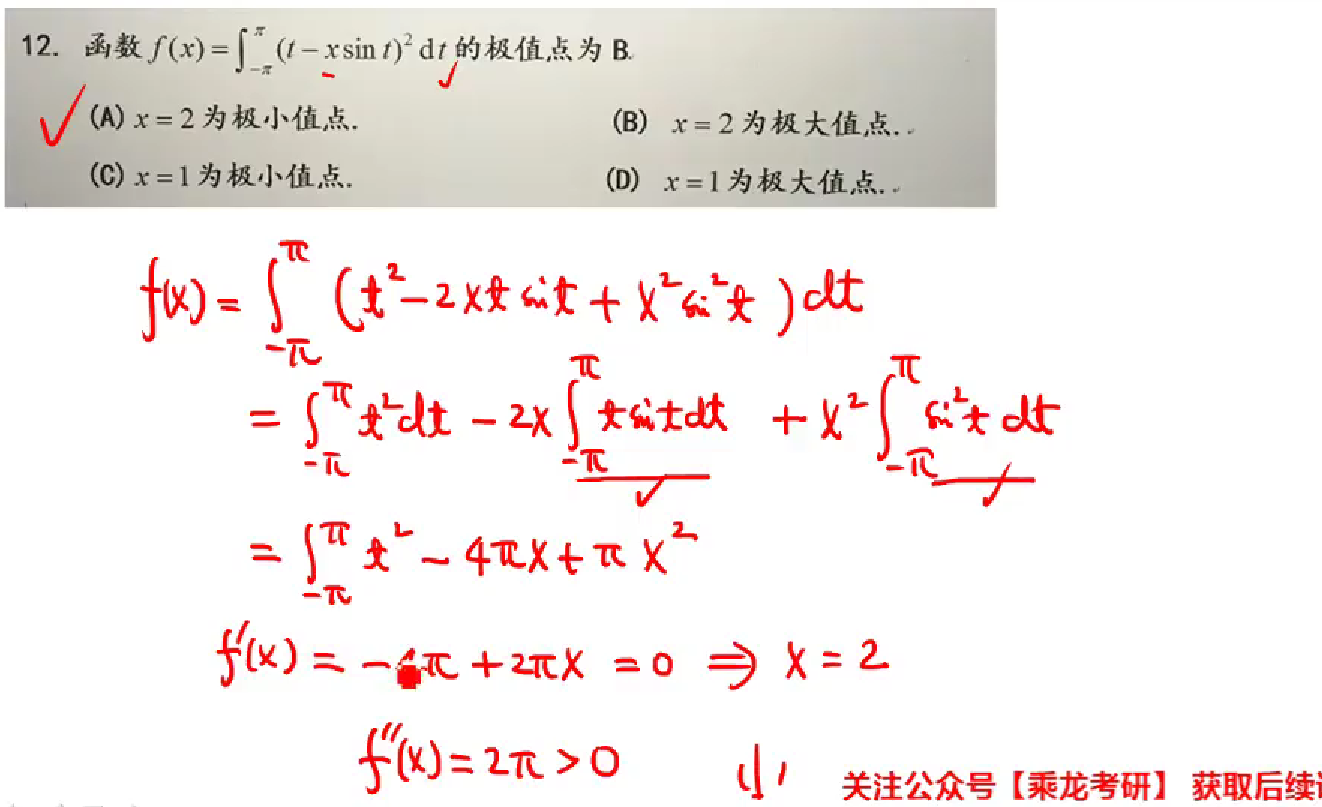 12. 函数 f(x)=∫_{-π}^{π}(t-x sin t)² dt 的极值点为 B.
(A) x=2 为极小值点. (B) x=2 为极大值点.
(C) x=1 为极小值点. (D) x=1 为极大值点.
f(x)=∫_{-π}^{π}(t²-2xt sin t+x² sin²t)dt
=∫_{-π}^{π}t²dt-2x∫_{-π}^{π}t sin t dt+x²∫_{-π}^{π}sin²t dt
=∫_{-π}^{π}t²-4πx+πx²
f'(x)=-4π+2πx=0⇒x=2
f''(x)=2π>0 小
关注公众号【乘龙考研】 获取后续